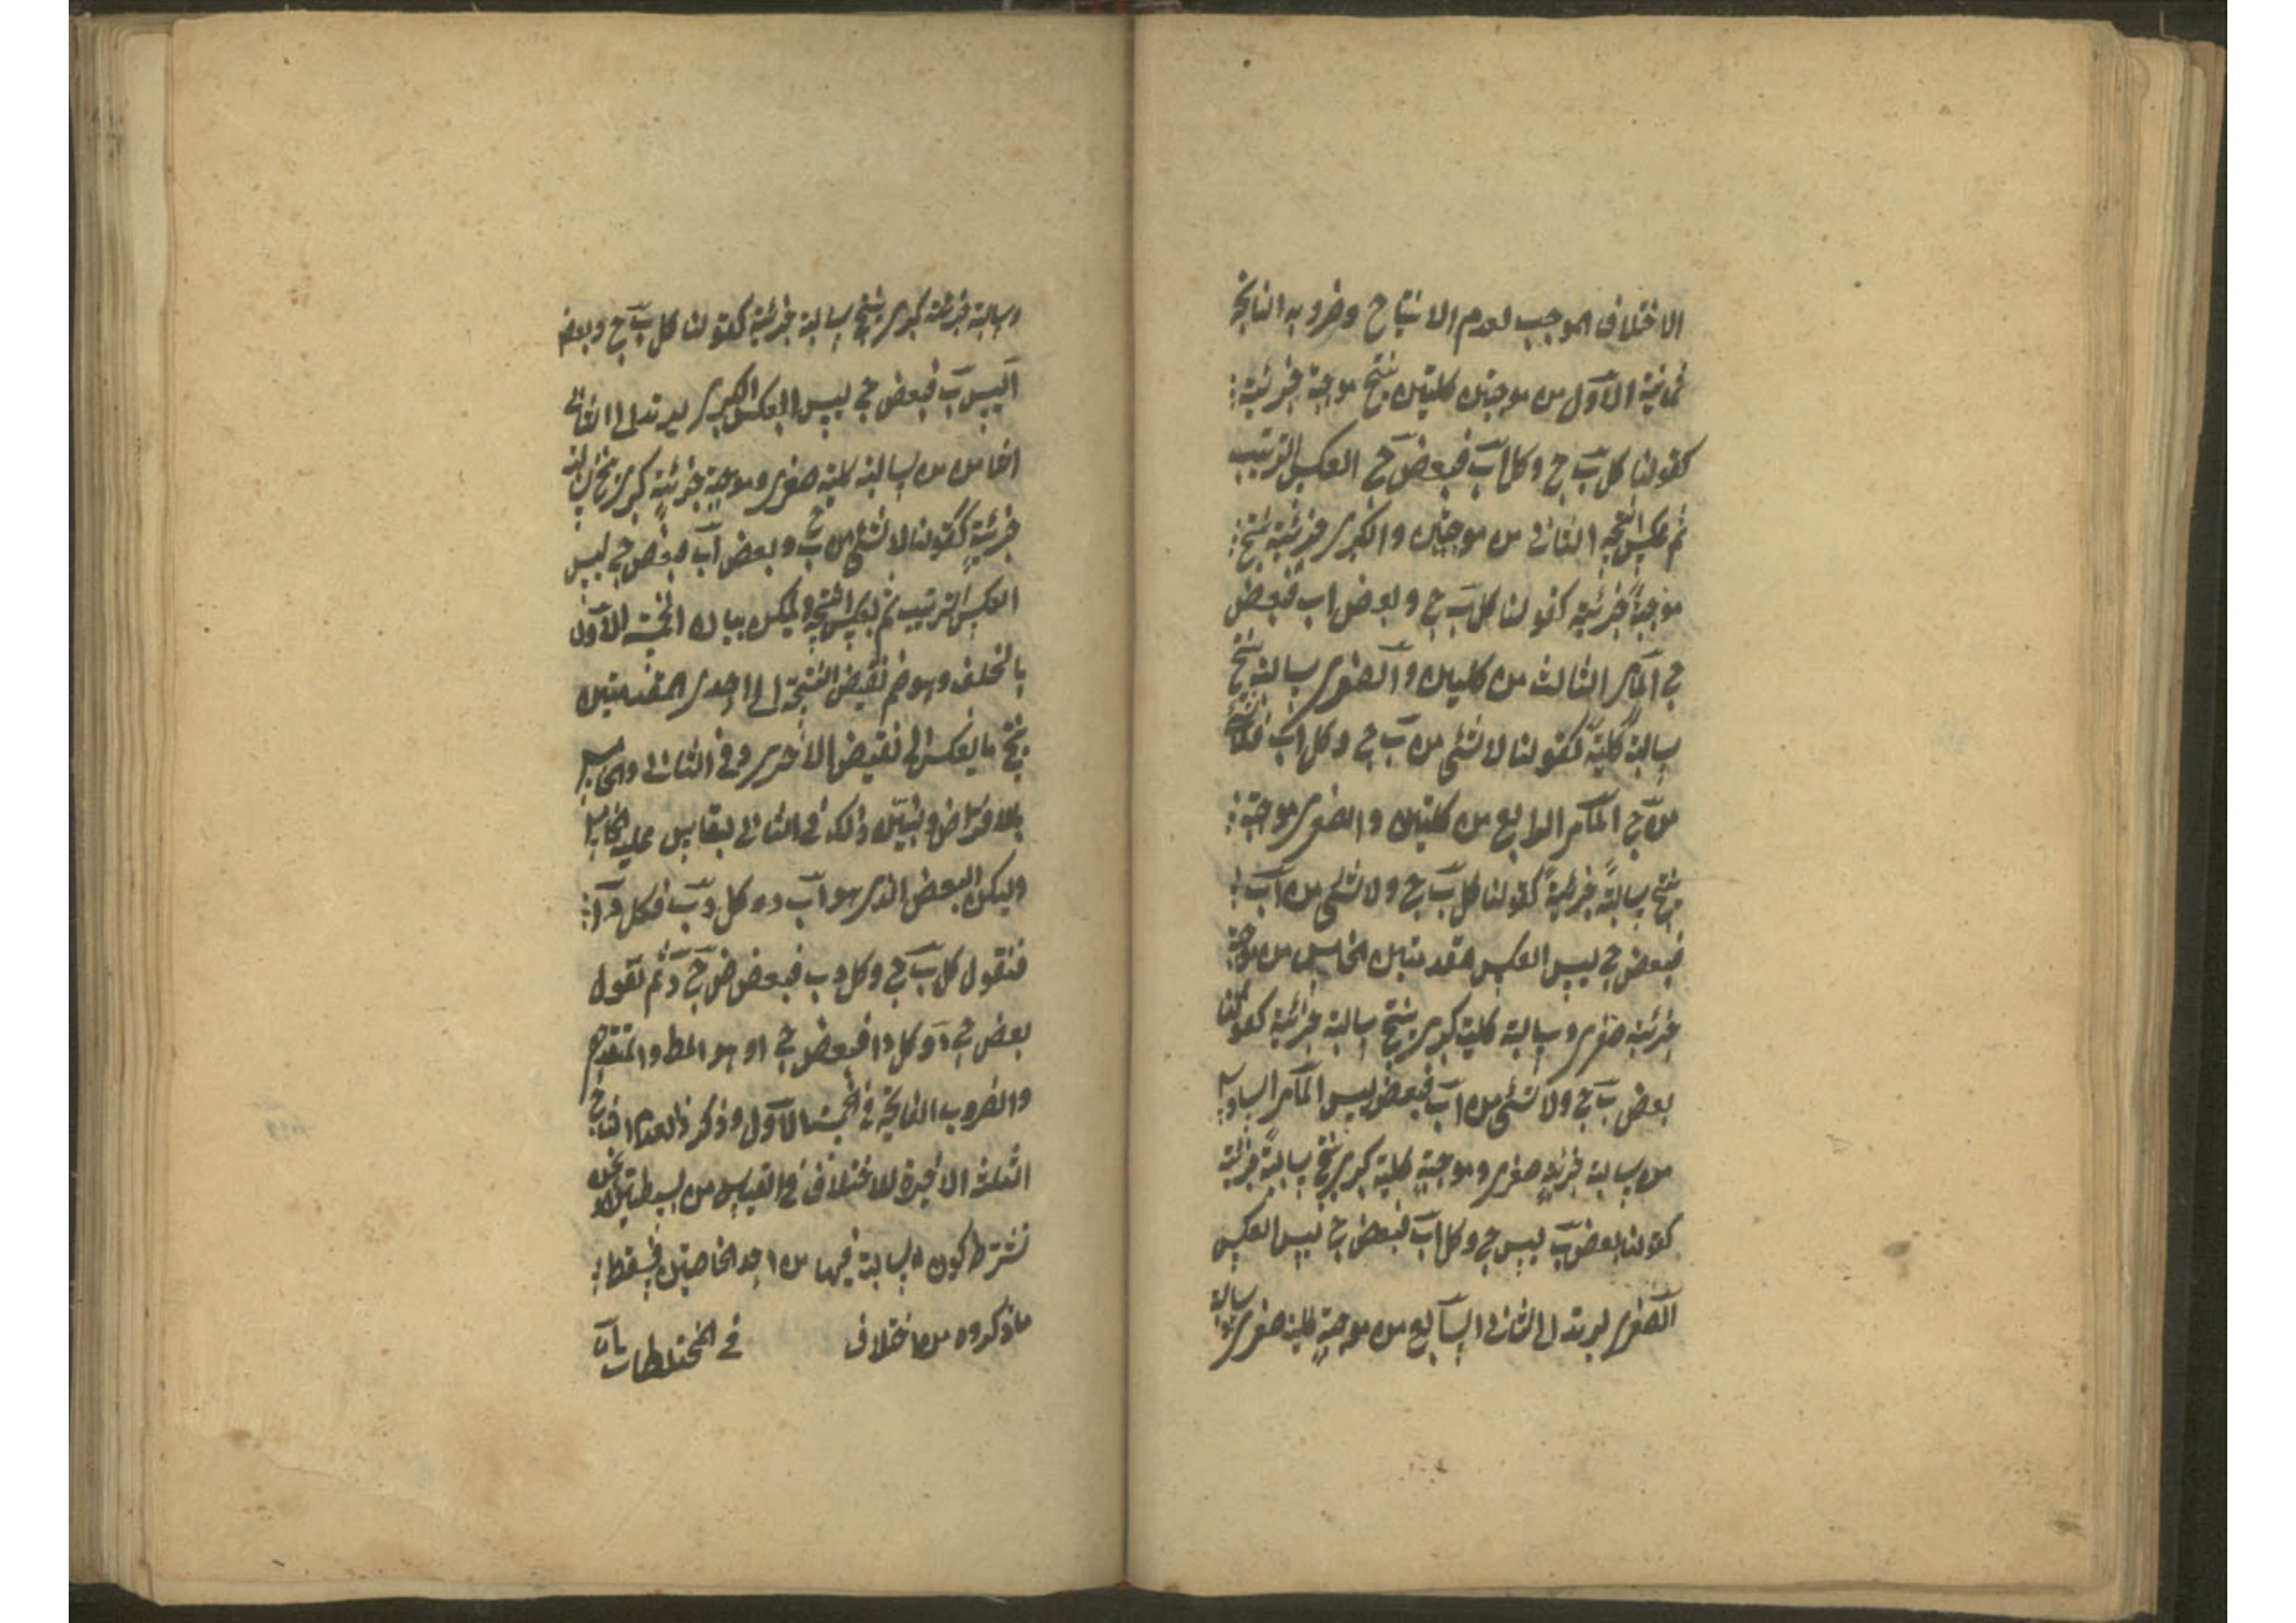 الاختلاف الموجب لعدم الانتاج وضروبه الناتجة
ثمانية الاول من موجبتين كليتين ينتج موجبة جزئية
كقولنا كل ب ج وكل اب فبعض ج ا لعكس الترتيب
ثم عكس النتيجة الثانى من موجبتين والكبرى جزئية ينتج
موجبة جزئية كقولنا كل ب ج وبعض اب فبعض
ج ا لما مر الثالث من كليتين والصغرى سالبة ينتج
سالبة كلية كقولنا لا شئ من ب ج وكل اب فلا شئ
من ج ا لما مر الرابع من كليتين والصغرى موجبة
ينتج سالبة جزئية كقولنا كل ب ج ولا شئ من اب
فبعض ج ليس ا لعكس المقدمتين الخامس من موجبة
جزئية صغرى وسالبة كلية كبرى ينتج سالبة جزئية كقولنا
بعض ب ج ولا شئ من اب فبعض ليس ا لما مر السادس
من سالبة جزئية صغرى وموجبة كلية كبرى ينتج سالبة جزئية
كقولنا بعض ب ليس ج وكل اب فبعض ج ليس ا لعكس
الصغرى ليرتد الى الثانى السابع من موجبة كلية صغرى
وسالبة جزئية كبرى ينتج سالبة جزئية كقولنا كل ب ج وبعض
ا ليس ب فبعض ج ليس ا لعكس الكبرى ليرتد الى الثالث
الثامن من سالبة كلية صغرى وموجبة جزئية كبرى ينتج سالبة
جزئية كقولنا لا شئ من ب ج وبعض اب فبعض ج ليس
ا لعكس الترتيب ثم بعكس النتيجة ويمكن بيان الخمسة الاول
بالخلف وهو ضم نقيض النتيجة الى احدى المقدمتين
ينتج ما ينعكس الى نقيض الاخرى وفى الثانى والخامس
بالافتراض ونبين ذلك فى الثانى ليقاس عليه الخامس
وليكن البعض الذى هو اب د فكل د ب فكل د ا
فنقول كل ب ج وكل د ب فبعض ج د ثم نقول
بعض ج د وكل د ا فبعض ج ا وهو المط والمتقدمون
والضروب الناتجة فى الخمسة الاول وذكروا لعدم انتاج
الثلثة الاخيرة للاختلاف فى القياس من بسيطتين ونحن
نشترط كون السالبة فيها من احد الخاصتين فيسقط
ما ذكروه من الاختلاف فى المختلطات